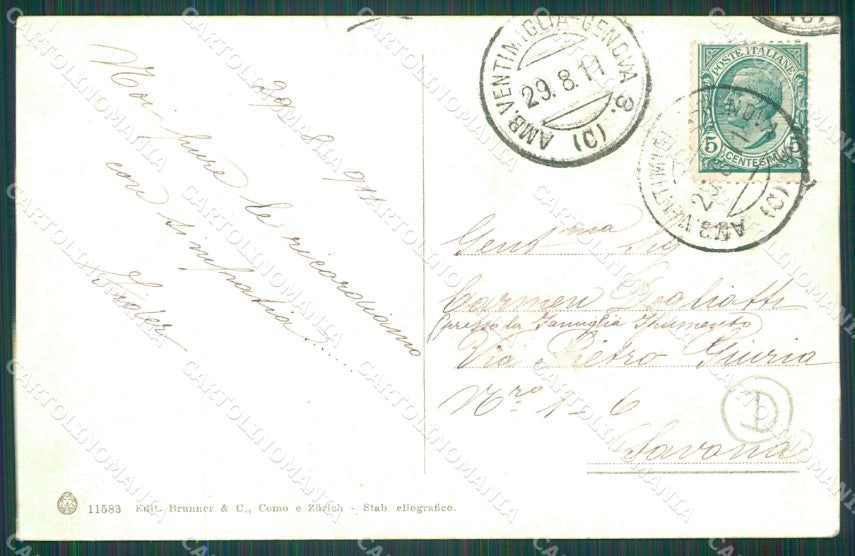 29. 8. 911
Noi pure le ricordiamo
con simpatia....
AMB. VENTIMIGLIA-GENOVA 3. (C)
29.8.11
POSTE ITALIANE
5 CENTESIMI 5
AMB. VENTIMIGLIA GENOVA (C)
Gent.ma Sig
Carmen Dogliatti
(presso la Famiglia Frumento)
Via Pietro Giuria
Nro 1-6
Savona
D
11583 Edit. Brunner & C., Como e Zürich - Stab. eliografico.
CARTOLINOMANIA